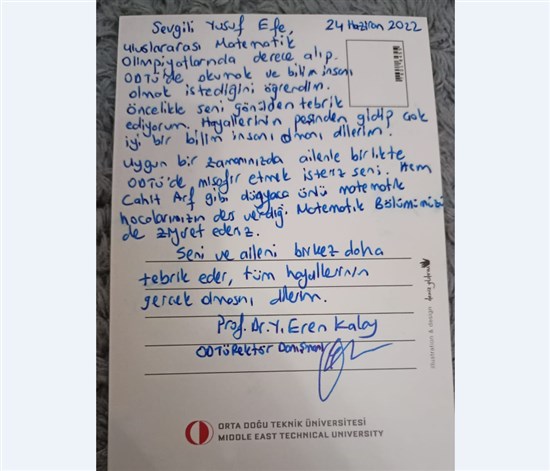 Sevgili Yusuf Efe,
24 Haziran 2022
Uluslararası Matematik
Olimpiyatlarında derece alıp.
ODTÜ'de okumak ve bilim insanı
olmak istediğini öğrendim.
Öncelikle seni gönülden tebrik
ediyorum. Hayallerinin peşinden gidip çok
iyi bir bilim insanı olmanı dilerim.
Uygun bir zamanınızda ailenle birlikte
ODTÜ'de misafir etmek isteriz seni. Hem
Cahit Arf gibi dünyaca ünlü matematik
hocalarımızın ders verdiği Matematik Bölümümüzü
de ziyaret ederiz.
Seni ve aileni bir kez daha
tebrik eder, tüm hayallerinin
gerçek olmasını dilerim.
Prof. Dr. Y. Eren Kalay
ODTÜ Rektör Danışmanı
illustration & design
ORTA DOĞU TEKNİK ÜNİVERSİTESİ
MIDDLE EAST TECHNICAL UNIVERSITY